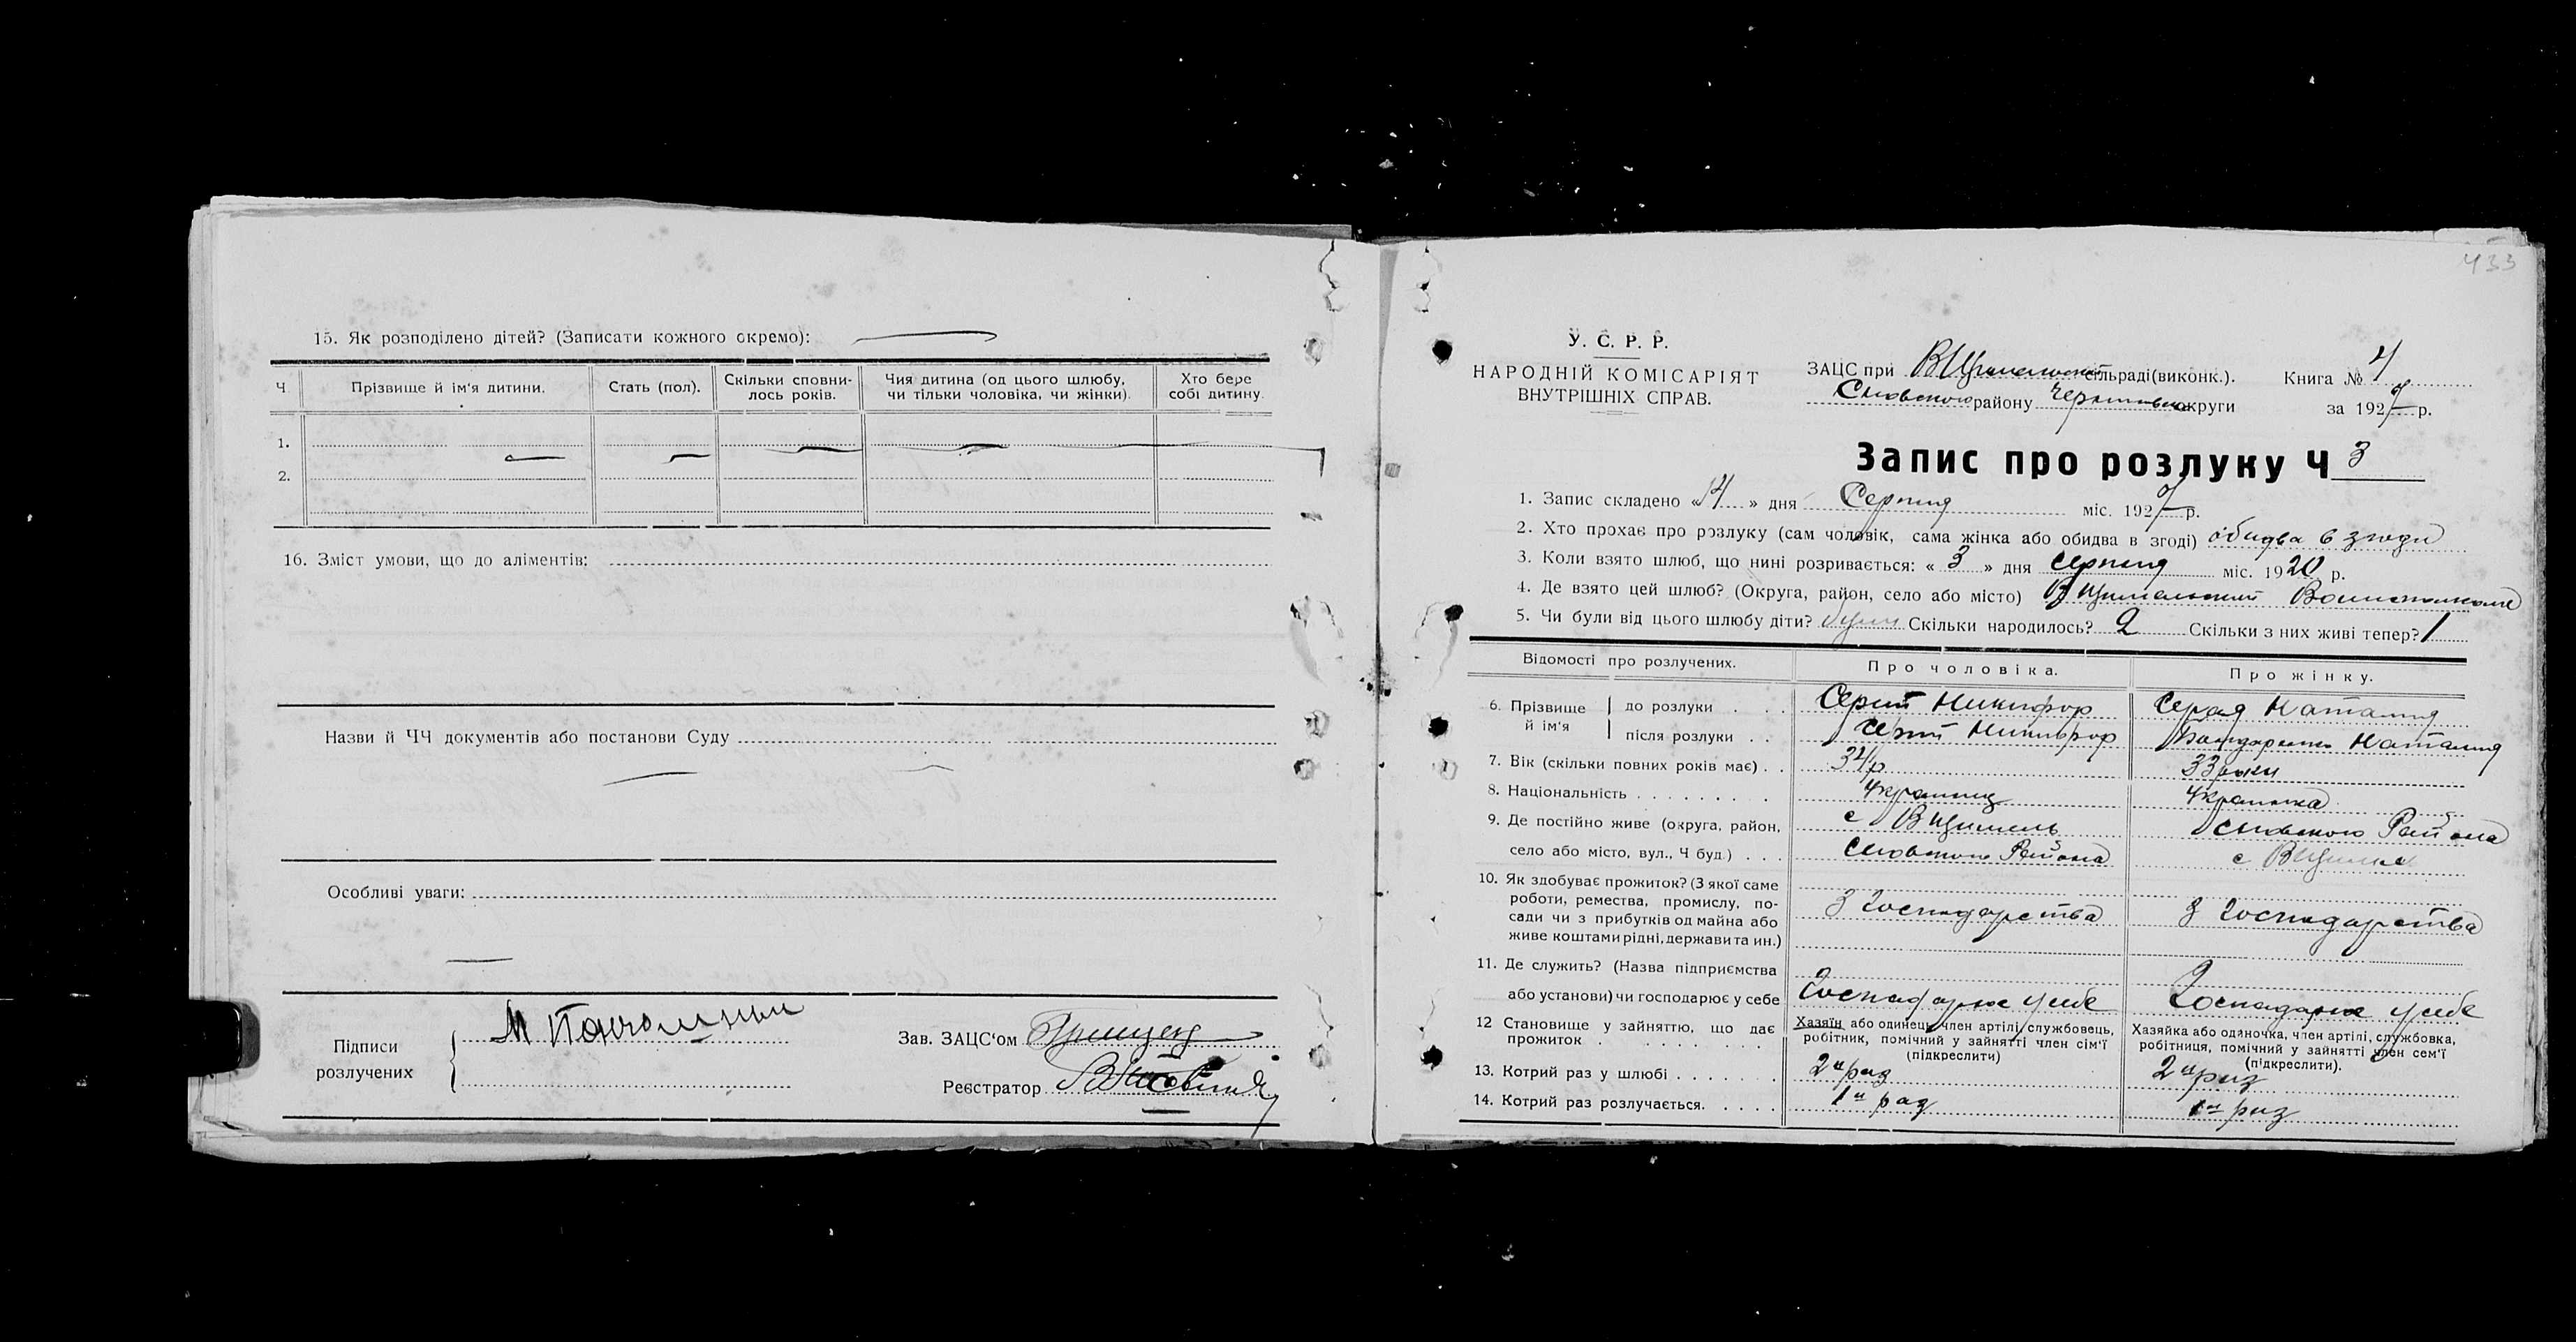 15. Як розподілено дітей? (Записати кожного окремо):
Ч. Прізвище й ім'я дитини. Стать (пол). Скільки сповни-лось років. Чия дитина (од цього шлюбу, чи тільки чоловіка, чи жінки). Хто бере собі дитину.
1.
2.
16. Зміст умови, що до аліментів:
Назви й ЧЧ документів або постанови Суду
Особливі уваги:
Підписи розлучених
Зав. ЗАЦС'ом
Реєстратор
433
У. С. Р. Р.
НАРОДНІЙ КОМІСАРІЯТ
ВНУТРІШНІХ СПРАВ.
ЗАЦС при сільраді (виконк.). Книга № 4
Сновського району округи за 1927 р.
Запис про розлуку Ч 3
1. Запис складено «14» дня Серпня міс. 1927 р.
2. Хто прохає про розлуку (сам чоловік, сама жінка або обидва в згоді) обидва в згоди
3. Коли взято шлюб, що нині розривається: «3» дня серпня міс. 1920 р.
4. Де взято цей шлюб? (Округа, район, село або місто)
5. Чи були від цього шлюбу діти? були Скільки народилось? 2 Скільки з них живі тепер? 1
Відомості про розлучених. Про чоловіка. Про жінку.
6. Прізвище й ім'я до розлуки Серий Никифор Серая Наталия
після розлуки Серий Никифор Бондаренко Наталия
7. Вік (скільки повних років має) 34 р 33 роки
8. Національність Украинец Украинка
9. Де постійно живе (округа, район, с В Щимель Сновского Района
село або місто, вул., Ч буд.) Сновского Района с В Щимель
10. Як здобуває прожиток? (З якої саме
роботи, ремества, промислу, по-
сади чи з прибутків од майна або з господарства з господарства
живе коштами рідні, держави та ин.)
11. Де служить? (Назва підприємства
або установи) чи господарює у себе Господарює у себе Господарює у себе
12 Становище у зайняттю, що дає прожиток Хазяїн або одинець, член артілі, службовець, Хазяйка або одяночка, член артілі, службовка,
робітник, помічний у зайнятті член сім'ї робітниця, помічний у зайнятті член сем'ї
(підкреслити) (підкреслити).
13. Котрий раз у шлюбі 2й раз 2й раз
14. Котрий раз розлучається. 1й раз 1й раз